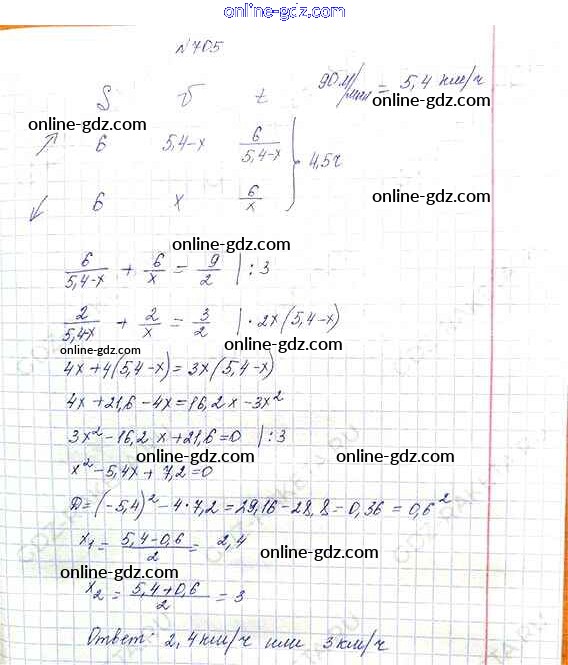 online-gdz.com
№705
90 м/мин = 5,4 км/ч
online-gdz.com
S υ t
online-gdz.com
↗ 6 5,4-x 6/(5,4-x) } 4,5ч
online-gdz.com
↙ 6 x 6/x
online-gdz.com
online-gdz.com
6/(5,4-x) + 6/x = 9/2 |:3
2/(5,4-x) + 2/x = 3/2 |·2x(5,4-x)
online-gdz.com
online-gdz.com
4x+4(5,4-x)=3x(5,4-x)
4x+21,6-4x=16,2x-3x²
online-gdz.com
3x²-16,2x+21,6=0 |:3
online-gdz.com
online-gdz.com
x²-5,4x+7,2=0
Д=(-5,4)²-4·7,2=29,16-28,8=0,36=0,6²
online-gdz.com
x₁=(5,4-0,6)/2=2,4
online-gdz.com
online-gdz.com
x₂=(5,4+0,6)/2=3
online-gdz.com
Ответ: 2,4 км/ч или 3 км/ч